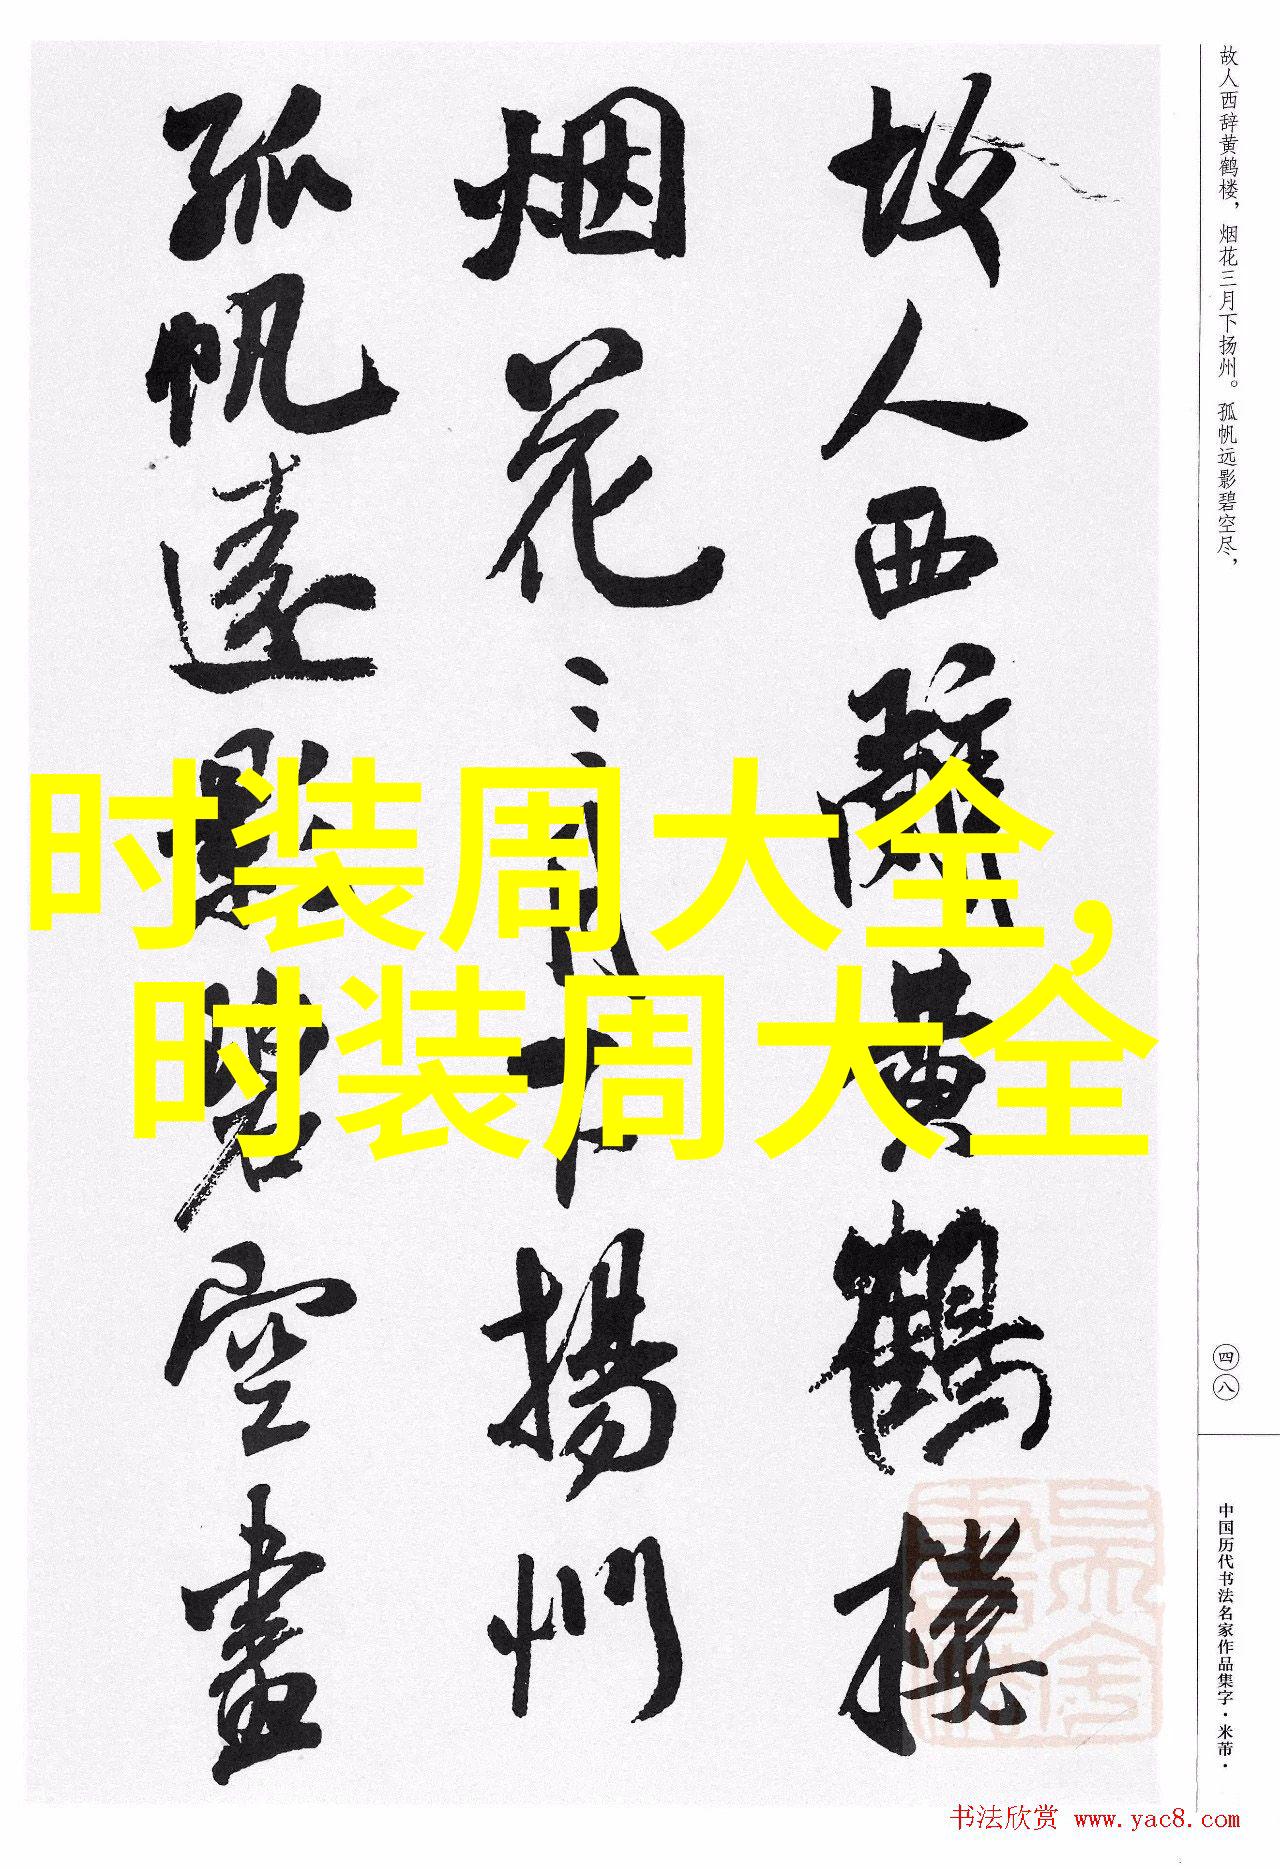 故人西辭黄鶴樓
烟花三月下揚州
孤帆遠影碧空盡
时装周大全，
时装周大全
故人西辞黄鹤楼，烟花三月下扬州。孤帆远影碧空尽，
四八
中国历代书法名家作品集字·米芾·
书法欣赏 www.yac8.com